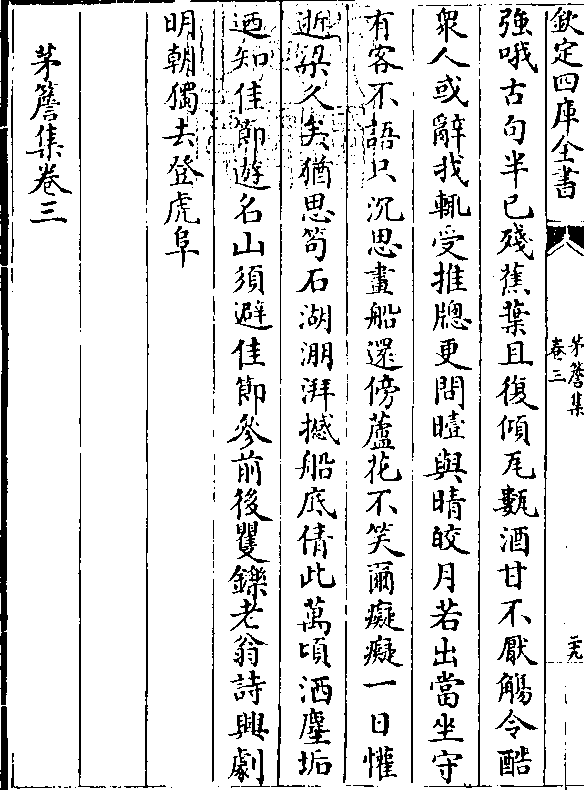 欽定四庫全書
茅簷集
卷三
三九
強哦古句半已殘蕉葉且復傾瓦甌酒甘不厭觴令酷
衆人或辭我輒受推牕更問曀與晴皎月若出當坐守
有客不語只沉思畫船還傍蘆花不笑爾癡癡一日懽
逝梁久矣猶思笱石湖淜湃撼船底倩此萬頃洒塵垢
迺知佳節遊名山須避佳節參前後矍鑠老翁詩興劇
明朝獨去登虎阜
茅簷集卷三